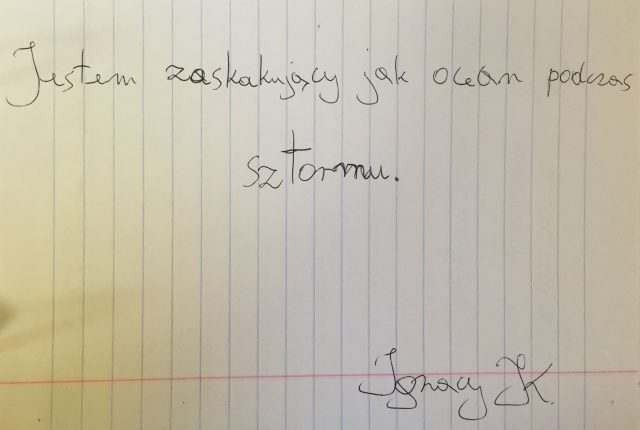 Jestem zaskakujący jak ocean podczas
sztormu.
Ignacy K.